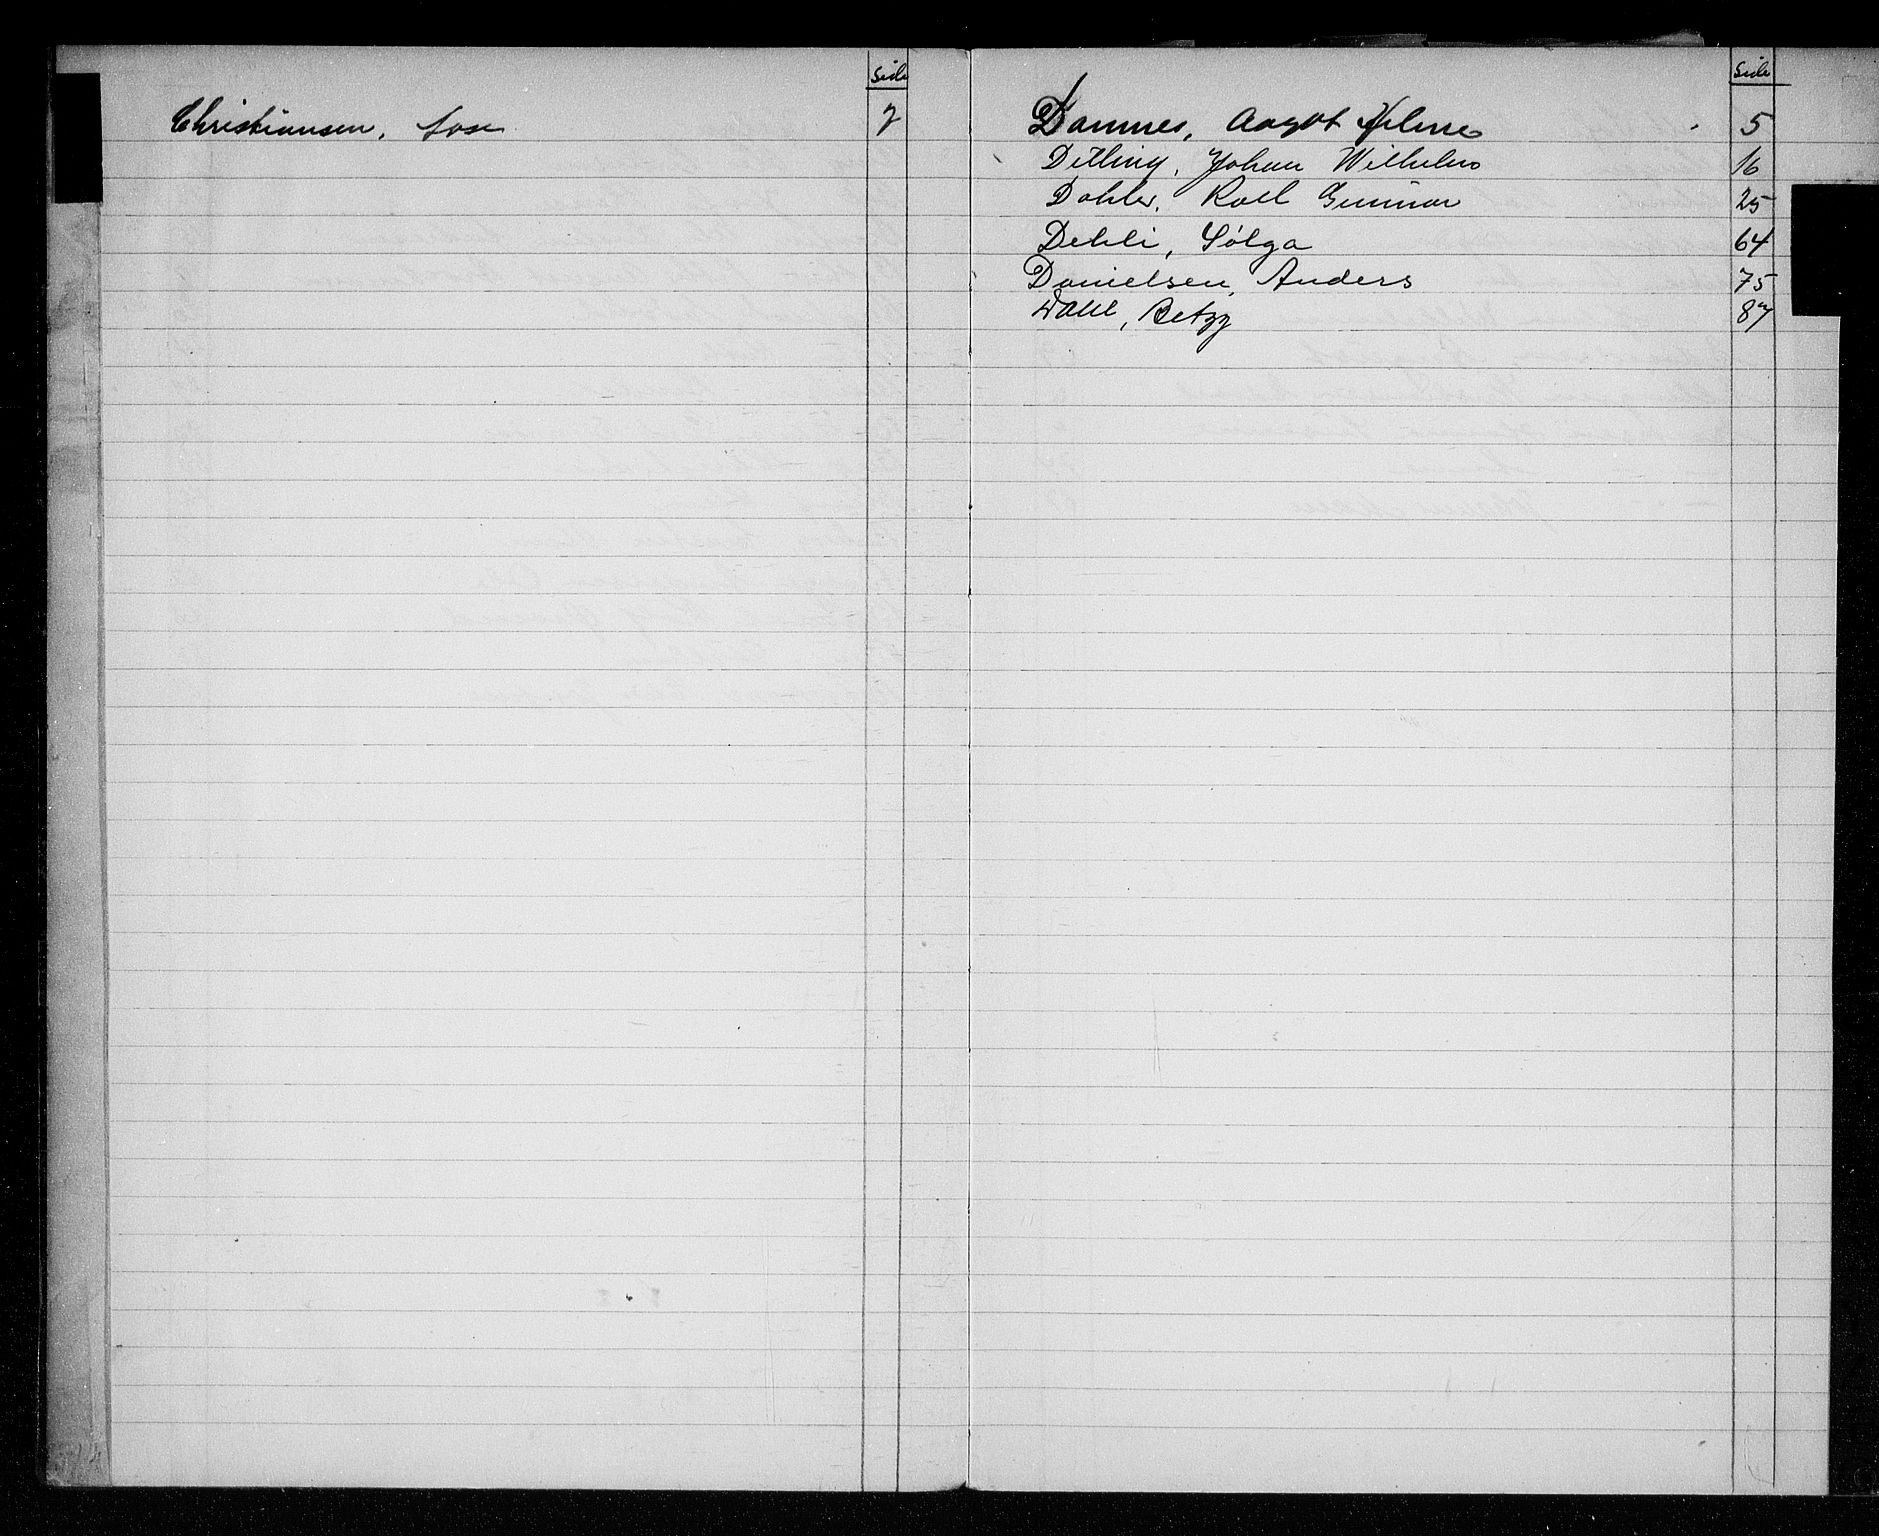 Side
Christiansen, 7
Side
Damnes, Aagot Helene 5
Detling, Johan Wilhelm 16
Dahler, Rolf Gunnar 25
Dehli, Sølga 64
Danielsen, Anders 75
Dahl, Betzy 87